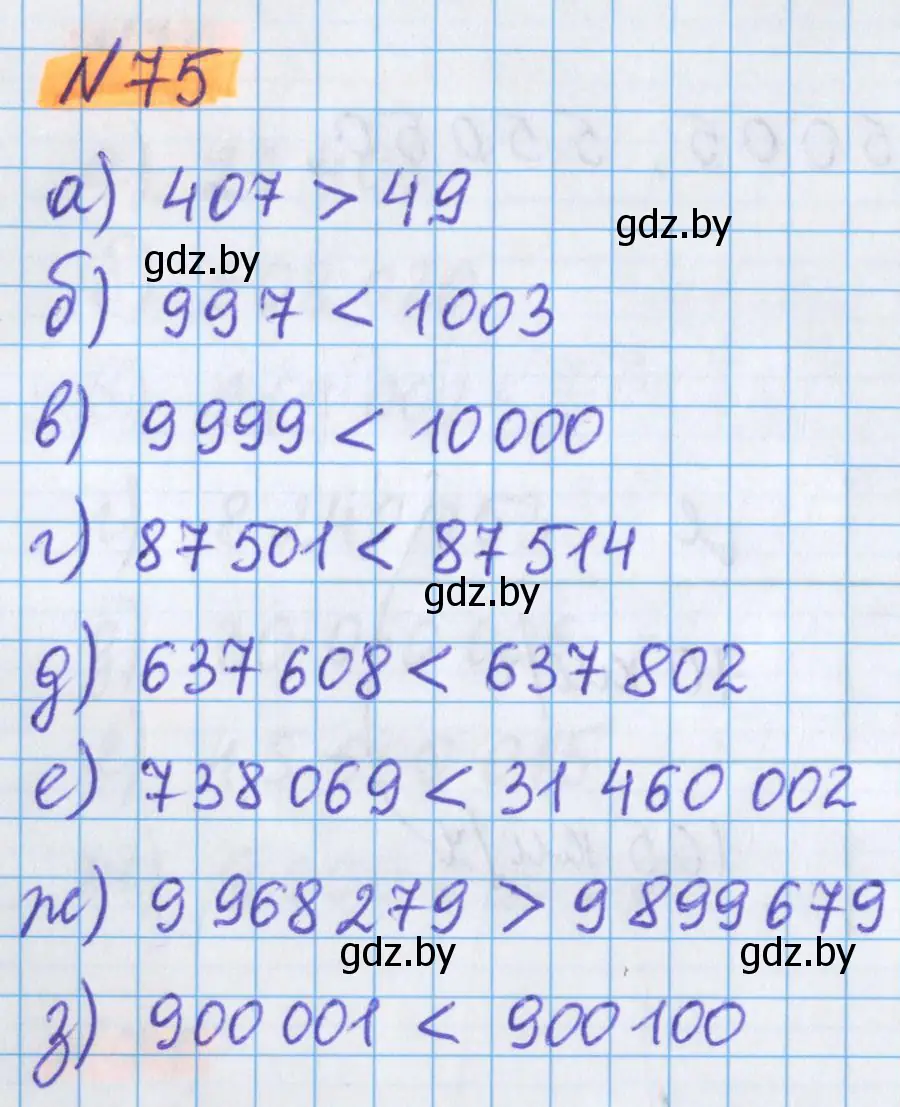 N 75
а) 407 > 49
gdz.by
gdz.by
б) 997 < 1003
в) 9 999 < 10 000
г) 87 501 < 87 514
gdz.by
д) 637 608 < 637 802
е) 738 069 < 31 460 002
ж) 9 968 279 > 9 899 679
gdz.by
gdz.by
з) 900 001 < 900 100